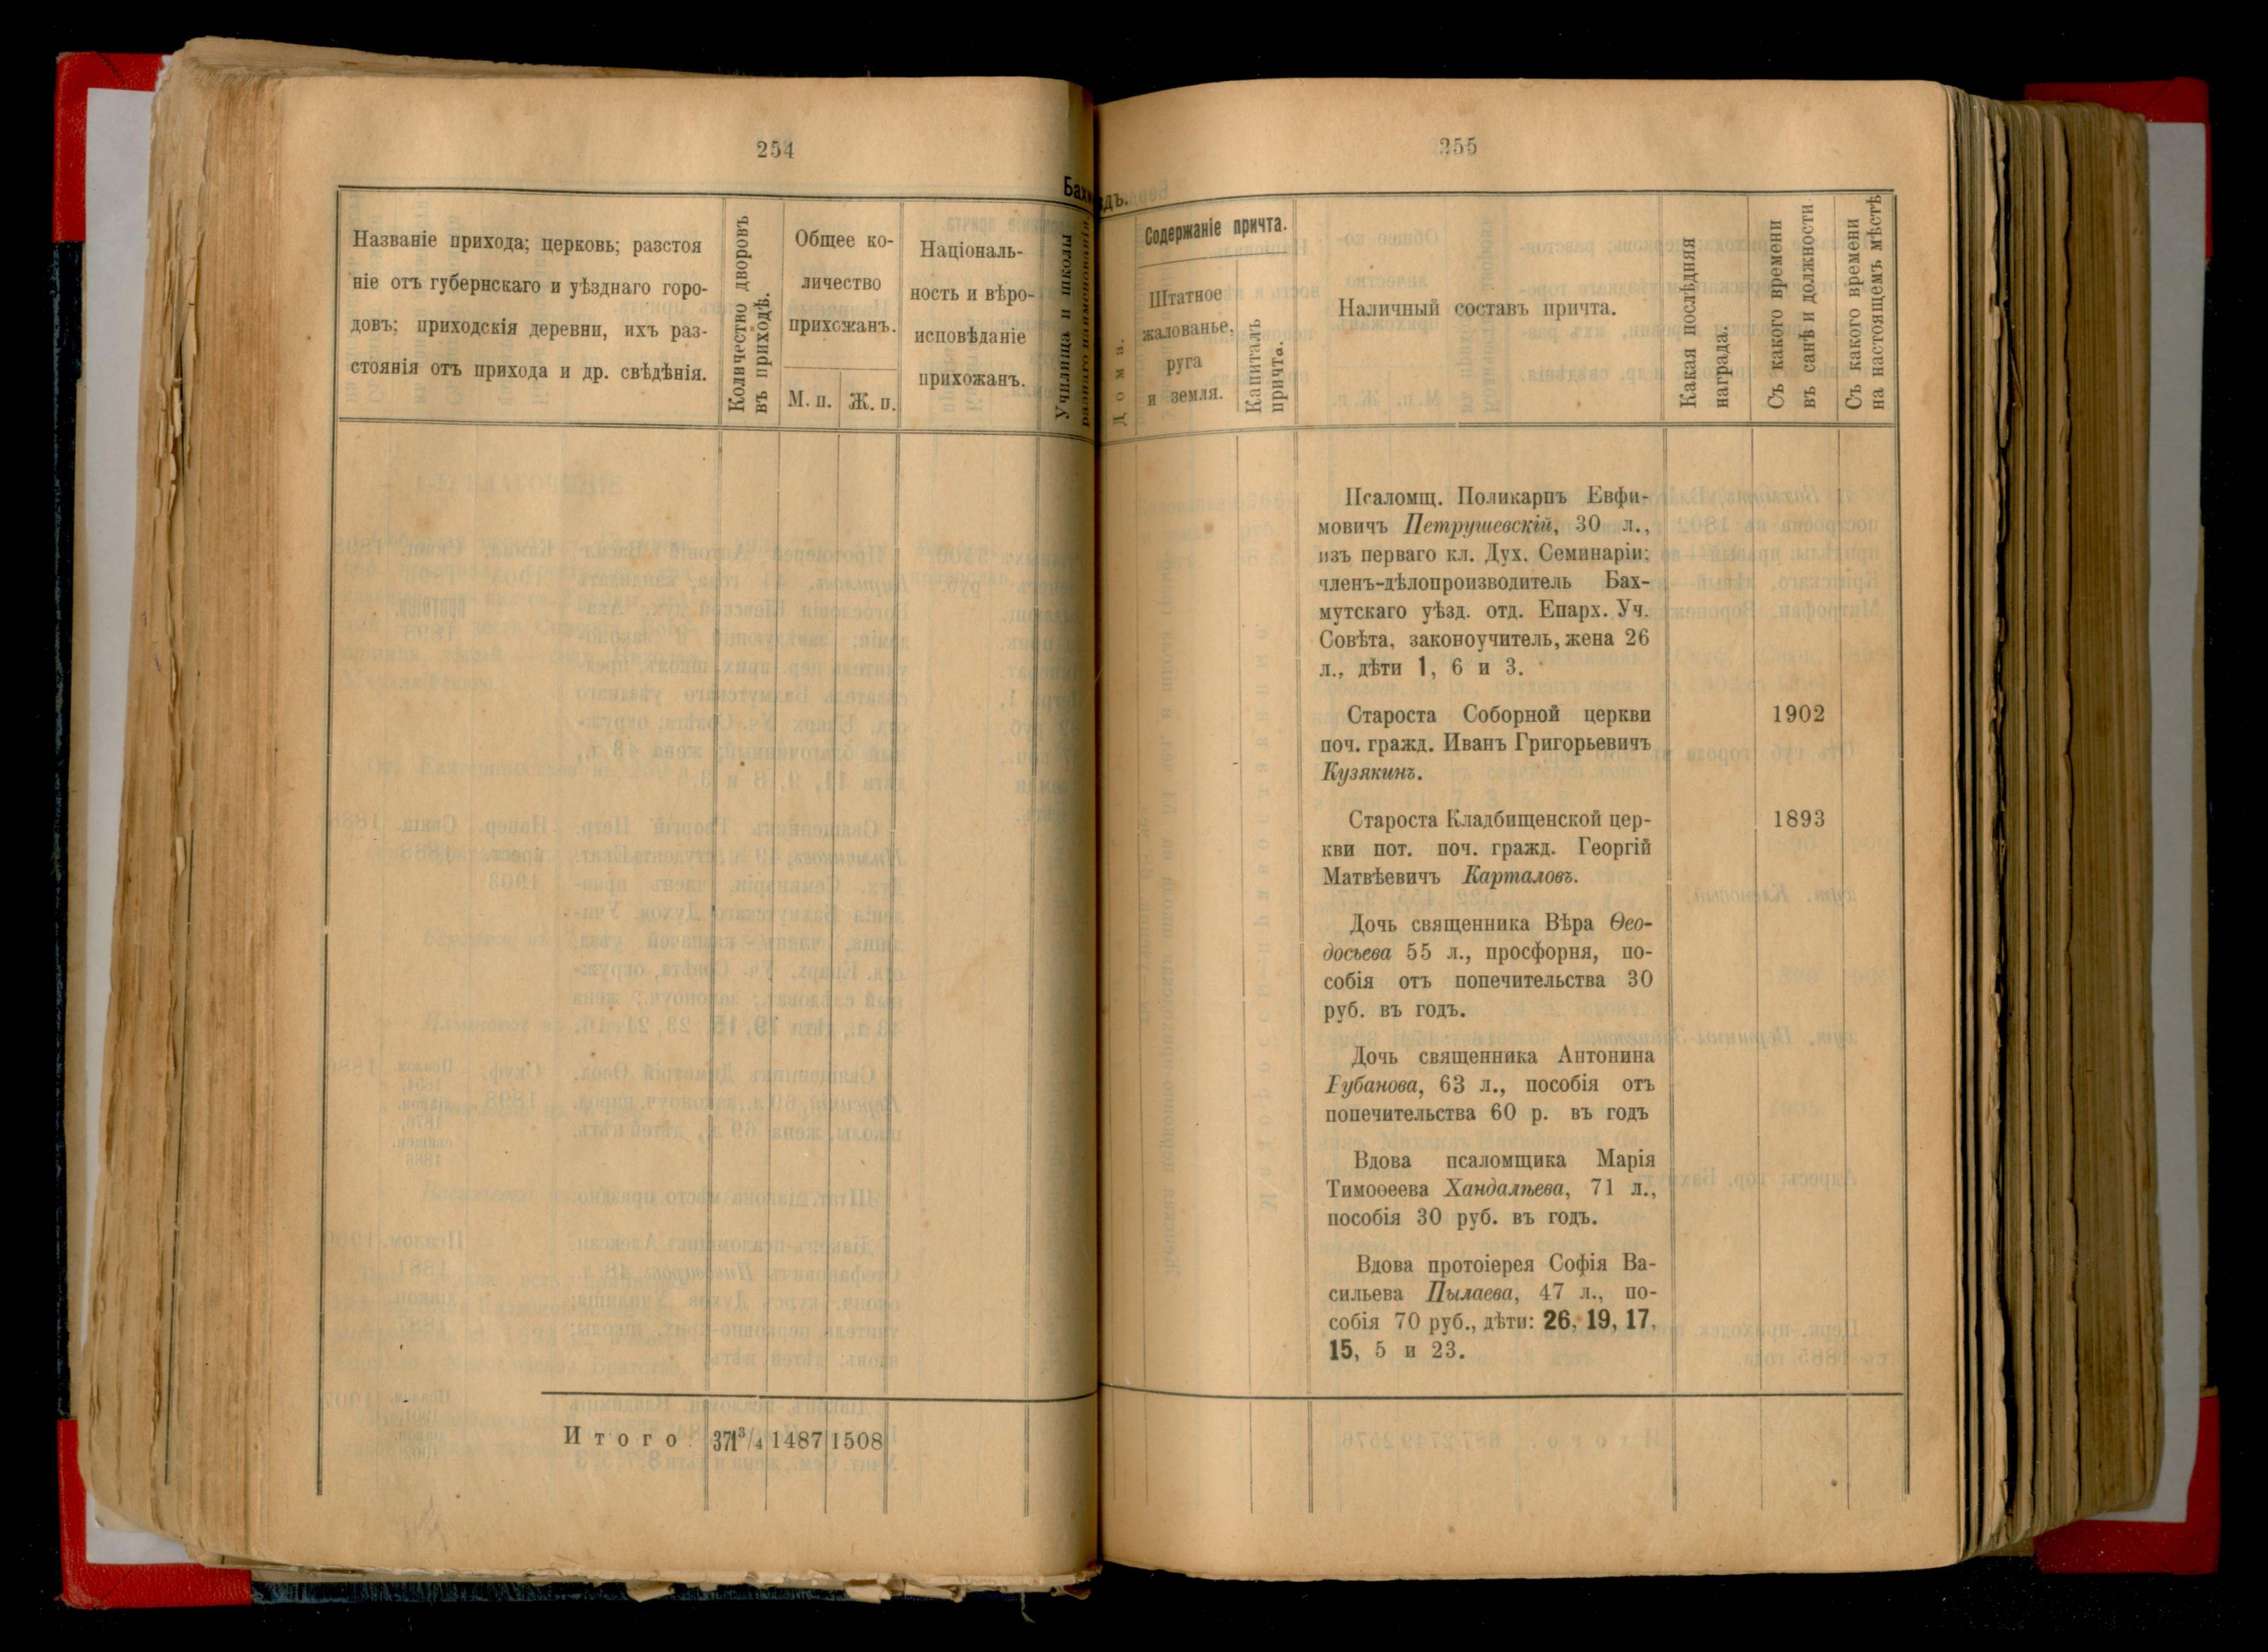 254
Названіе прихода; церковь; разстоя
ніе отъ губернскаго и уѣзднаго горо-
довъ; приходскія деревни, ихъ раз-
стоянія отъ прихода и др. свѣдѣнія.
Количество дворовъ
въ приходѣ.
Общее ко-
личество
прихожанъ.
М. п. Ж. п.
Національ-
ность и вѣро-
исповѣданіе
прихожанъ.
Училища и школы
разнаго наименованія
Итого 371³/₄ 1487 1508
255
Дома.
Содержаніе причта.
Штатное
жалованье,
руга
и земля.
Капиталъ
причта.
Наличный составъ причта.
Какая послѣдняя
награда.
Съ какого времени
въ санѣ и должности
Съ какого времени
на настоящемъ мѣстѣ
Псаломщ. Поликарпъ Евфи-
мовичъ Петрушевскій, 30 л.,
изъ перваго кл. Дух. Семинаріи;
членъ-дѣлопроизводитель Бах-
мутскаго уѣзд. отд. Епарх. Уч.
Совѣта, законоучитель, жена 26
л., дѣти 1, 6 и 3.
Староста Соборной церкви 1902
поч. гражд. Иванъ Григорьевичъ
Кузякинъ.
Староста Кладбищенской цер- 1893
кви пот. поч. гражд. Георгій
Матвѣевичъ Карталовъ.
Дочь священника Вѣра Ѳео-
досьева 55 л., просфорня, по-
собія отъ попечительства 30
руб. въ годъ.
Дочь священника Антонина
Губанова, 63 л., пособія отъ
попечительства 60 р. въ годъ
Вдова псаломщика Марія
Тимоѳеева Хандалѣева, 71 л.,
пособія 30 руб. въ годъ.
Вдова протоіерея Софія Ва-
сильева Пылаева, 47 л., по-
собія 70 руб., дѣти: 26, 19, 17,
15, 5 и 23.